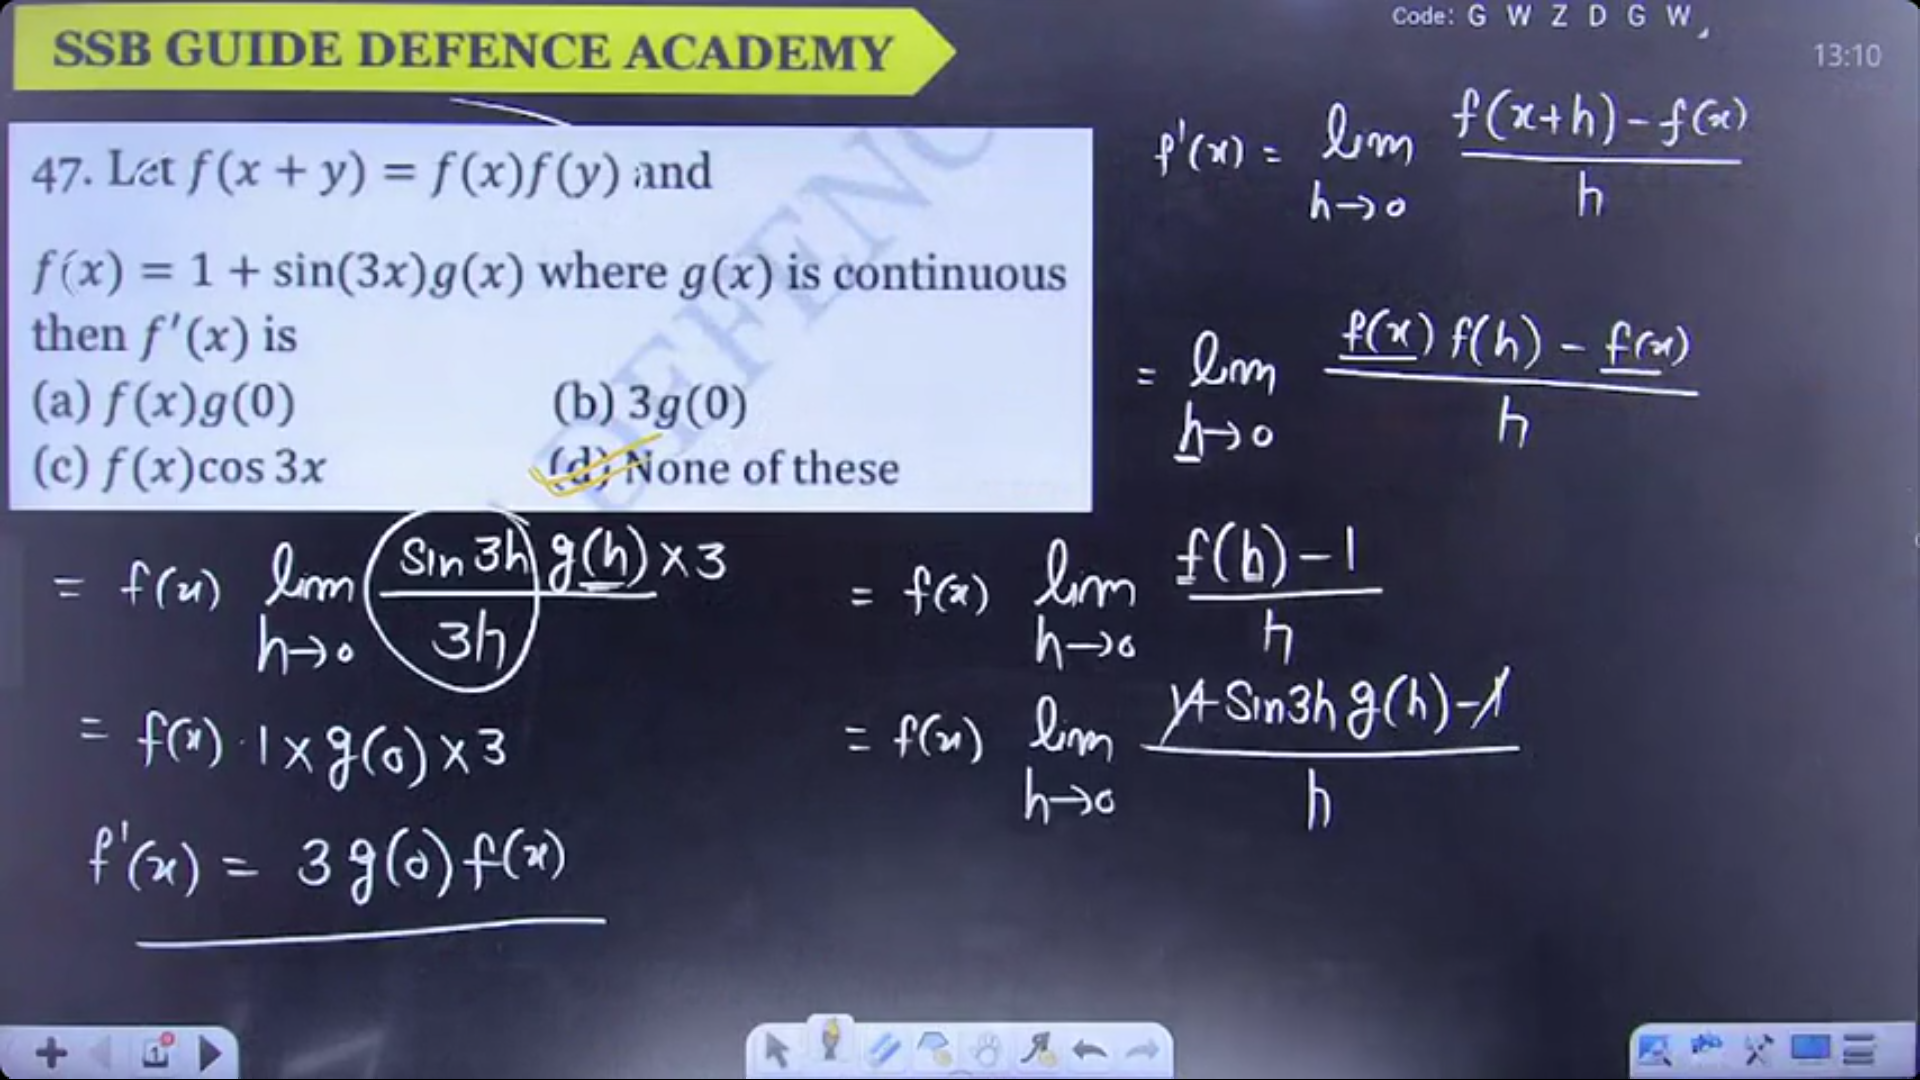 Code: G W Z D G W
SSB GUIDE DEFENCE ACADEMY
13:10
DEFENC
47. Let f(x + y) = f(x)f(y) and
f(x) = 1 + sin(3x)g(x) where g(x) is continuous
then f'(x) is
(a) f(x)g(0) (b) 3g(0)
(c) f(x)cos 3x (d) None of these
f'(x) = lim h→0 f(x+h) - f(x) / h
= lim h→0 f(x) f(h) - f(x) / h
= f(x) lim h→0 f(h) - 1 / h
= f(x) lim h→0 1 + Sin3h g(h) - 1 / h
= f(x) lim h→0 Sin 3h g(h) × 3 / 3h
= f(x) · 1 × g(0) × 3
f'(x) = 3 g(0) f(x)